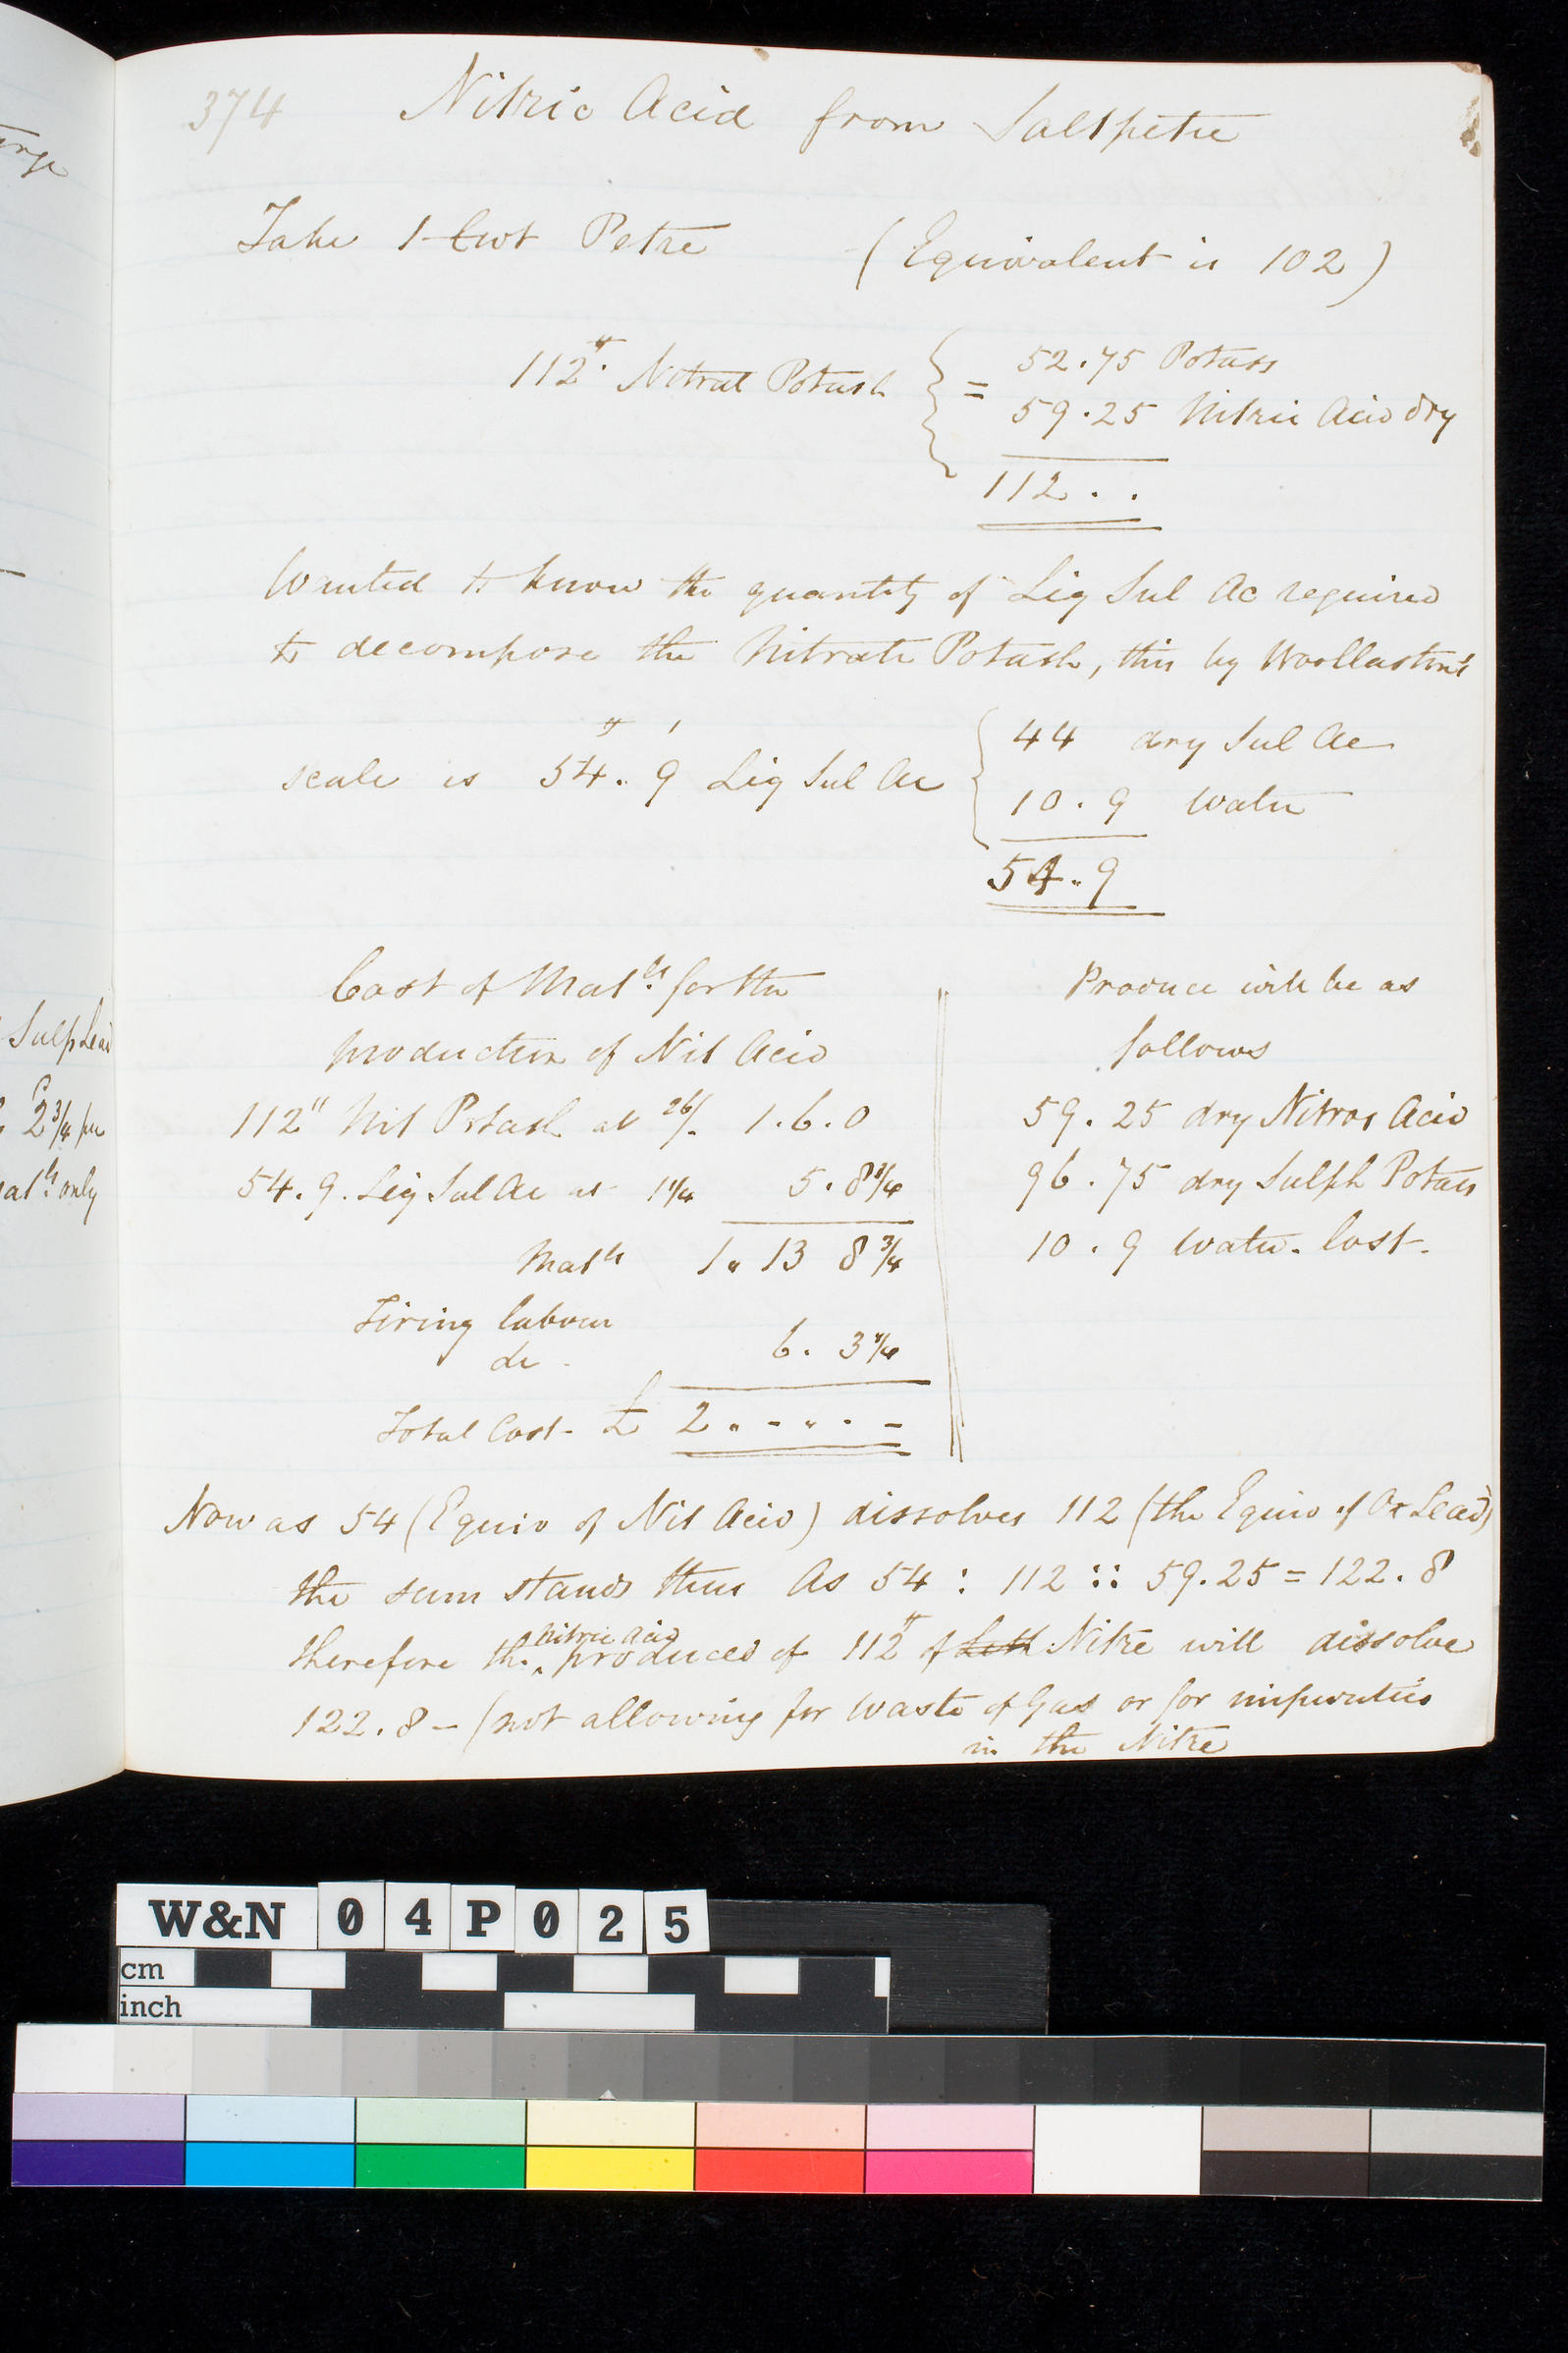 374 Nitric Acid from Saltpetre
Take 1 Cwt Petre (Equivalent is 102)
112lb. Nitrat Potash { = 52.75 Potass
59.25 Nitric Acid dry
112 . .
Wanted to know the quantity of Liq Sul Ac required
to decompose the Nitrate Potash, this by Woollaston's
scale is 54. 9 Liq Sul Ac { 44 dry Sul Ac
10. 9 Water
54. 9
Cost of Matls. for the
production of Nit Acid
112" Nit Potash at 26/. 1.6.0
54.9. Liq Sul Ac at 1 1/4 5. 8 3/4
Matls 1. 13 8 3/4
Firing labour
&c
6. 3 1/4
Total Cost £ 2 . - . . -
Produce will be as
follows
59. 25 dry Nitros Acid
96. 75 dry Sulph Potass
10. 9 Water. lost.
Now as 54 (Equiv of Nit Acid) dissolves 112 (the Equiv of Ox Lead)
the sum stands thus As 54 : 112 :: 59.25 = 122. 8
nitric acid
therefore the produced of 112lb of Nitre will dissolve
122. 8 - (not allowing for Waste of Gas or for impurities
in the Nitre
Sulp Lead
2 3/4 per
matls. only
W&N 04P025
cm
inch